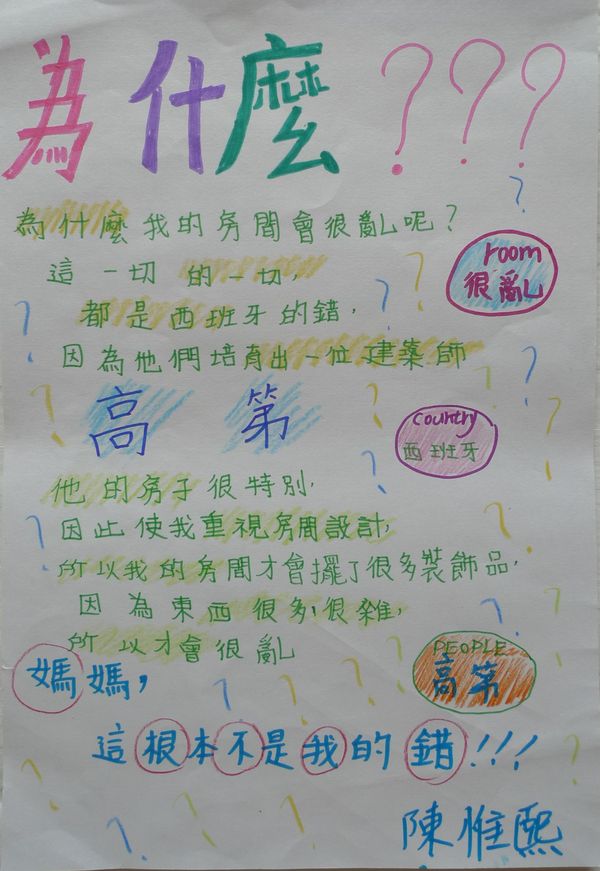 為什麼???
為什麼我的房間會很亂呢?
room
很亂
這一切的一切,
都是西班牙的錯,
因為他們培育出一位建築師
高第
country
西班牙
他的房子很特別,
因此使我重視房間設計,
所以我的房間才會擺了很多裝飾品,
因為東西很多,很雜,
所以才會很亂
PEOPLE
高第
媽媽,
這根本不是我的錯!!!
陳惟熙